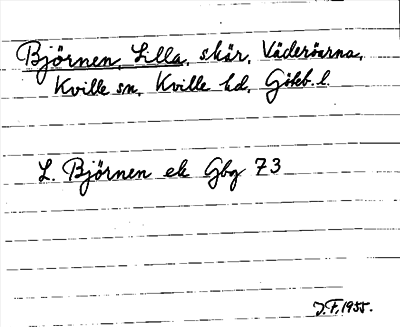 Björnen, Lilla, skär, Väderöarna,
Kville sn, Kville hd, Göteb. l.
L. Björnen ek Gbg 73
J.F. 1955.